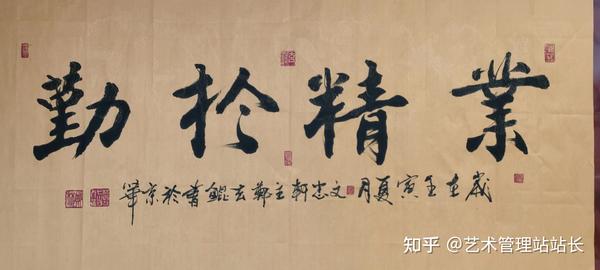 業精於勤
歲在壬寅夏月文忠軒主鄭玄鯤書於京華
知乎 @艺术管理站站长